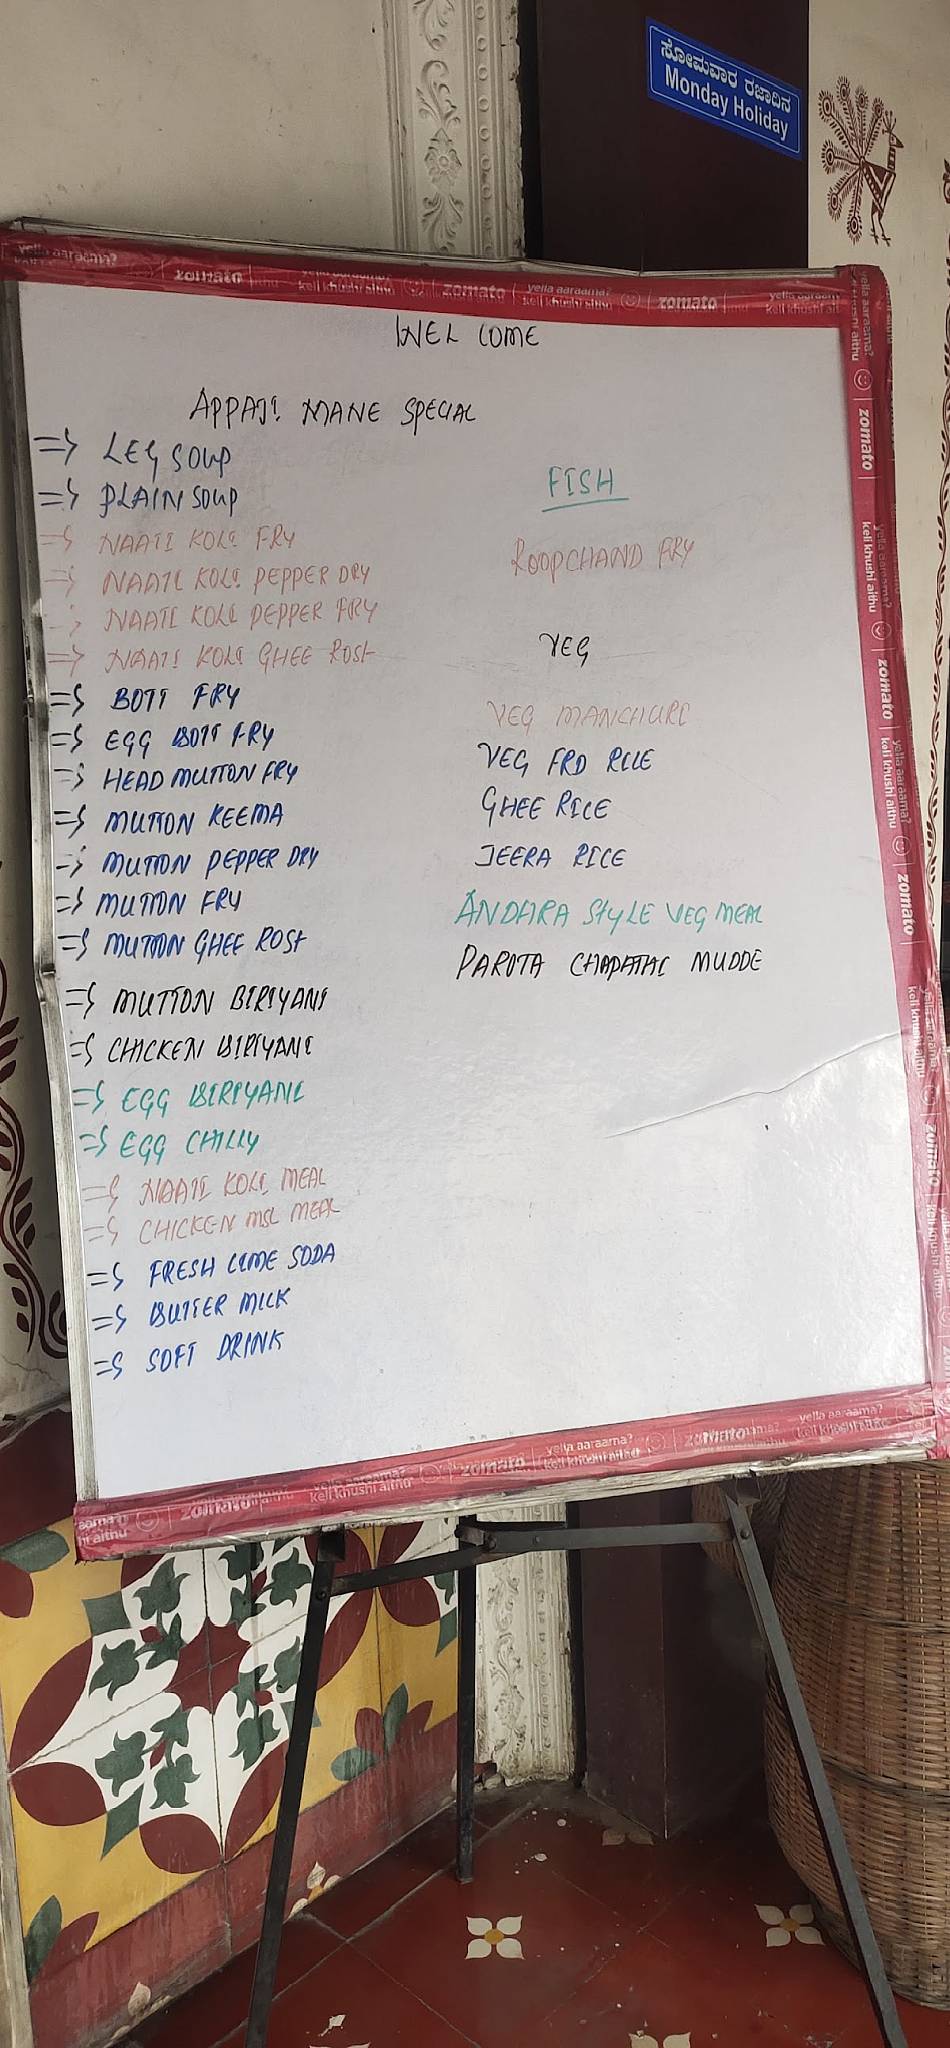 ಸೋಮವಾರ ರಜಾದಿನ
Monday Holiday
yella aaraama?
zomato
keli khushi aithu
WEL COME
APPAJI MANE SPECIAL
=> LEG SOUP
=> PLAIN SOUP
=> NAATI KOLI FRY
=> NAATI KOLI PEPPER DRY
=> NAATI KOLI PEPPER FRY
=> NAATI KOLI GHEE ROST
=> BOTI FRY
=> EGG BOTI FRY
=> HEAD MUTTON FRY
=> MUTTON KEEMA
=> MUTTON PEPPER DRY
=> MUTTON FRY
=> MUTTON GHEE ROST
=> MUTTON BIRIYANI
=> CHICKEN BIRIYANI
=> EGG BIRIYANI
=> EGG CHILLY
=> NAATI KOLI MEAL
=> CHICKEN MSL MEAL
=> FRESH LIME SODA
=> BUTTER MILK
=> SOFT DRINK
FISH
ROOPCHAND FRY
VEG
VEG MANCHURI
VEG FRD RICE
GHEE RICE
JEERA RICE
ANDHRA STYLE VEG MEAL
PAROTA CHAPATHI MUDDE